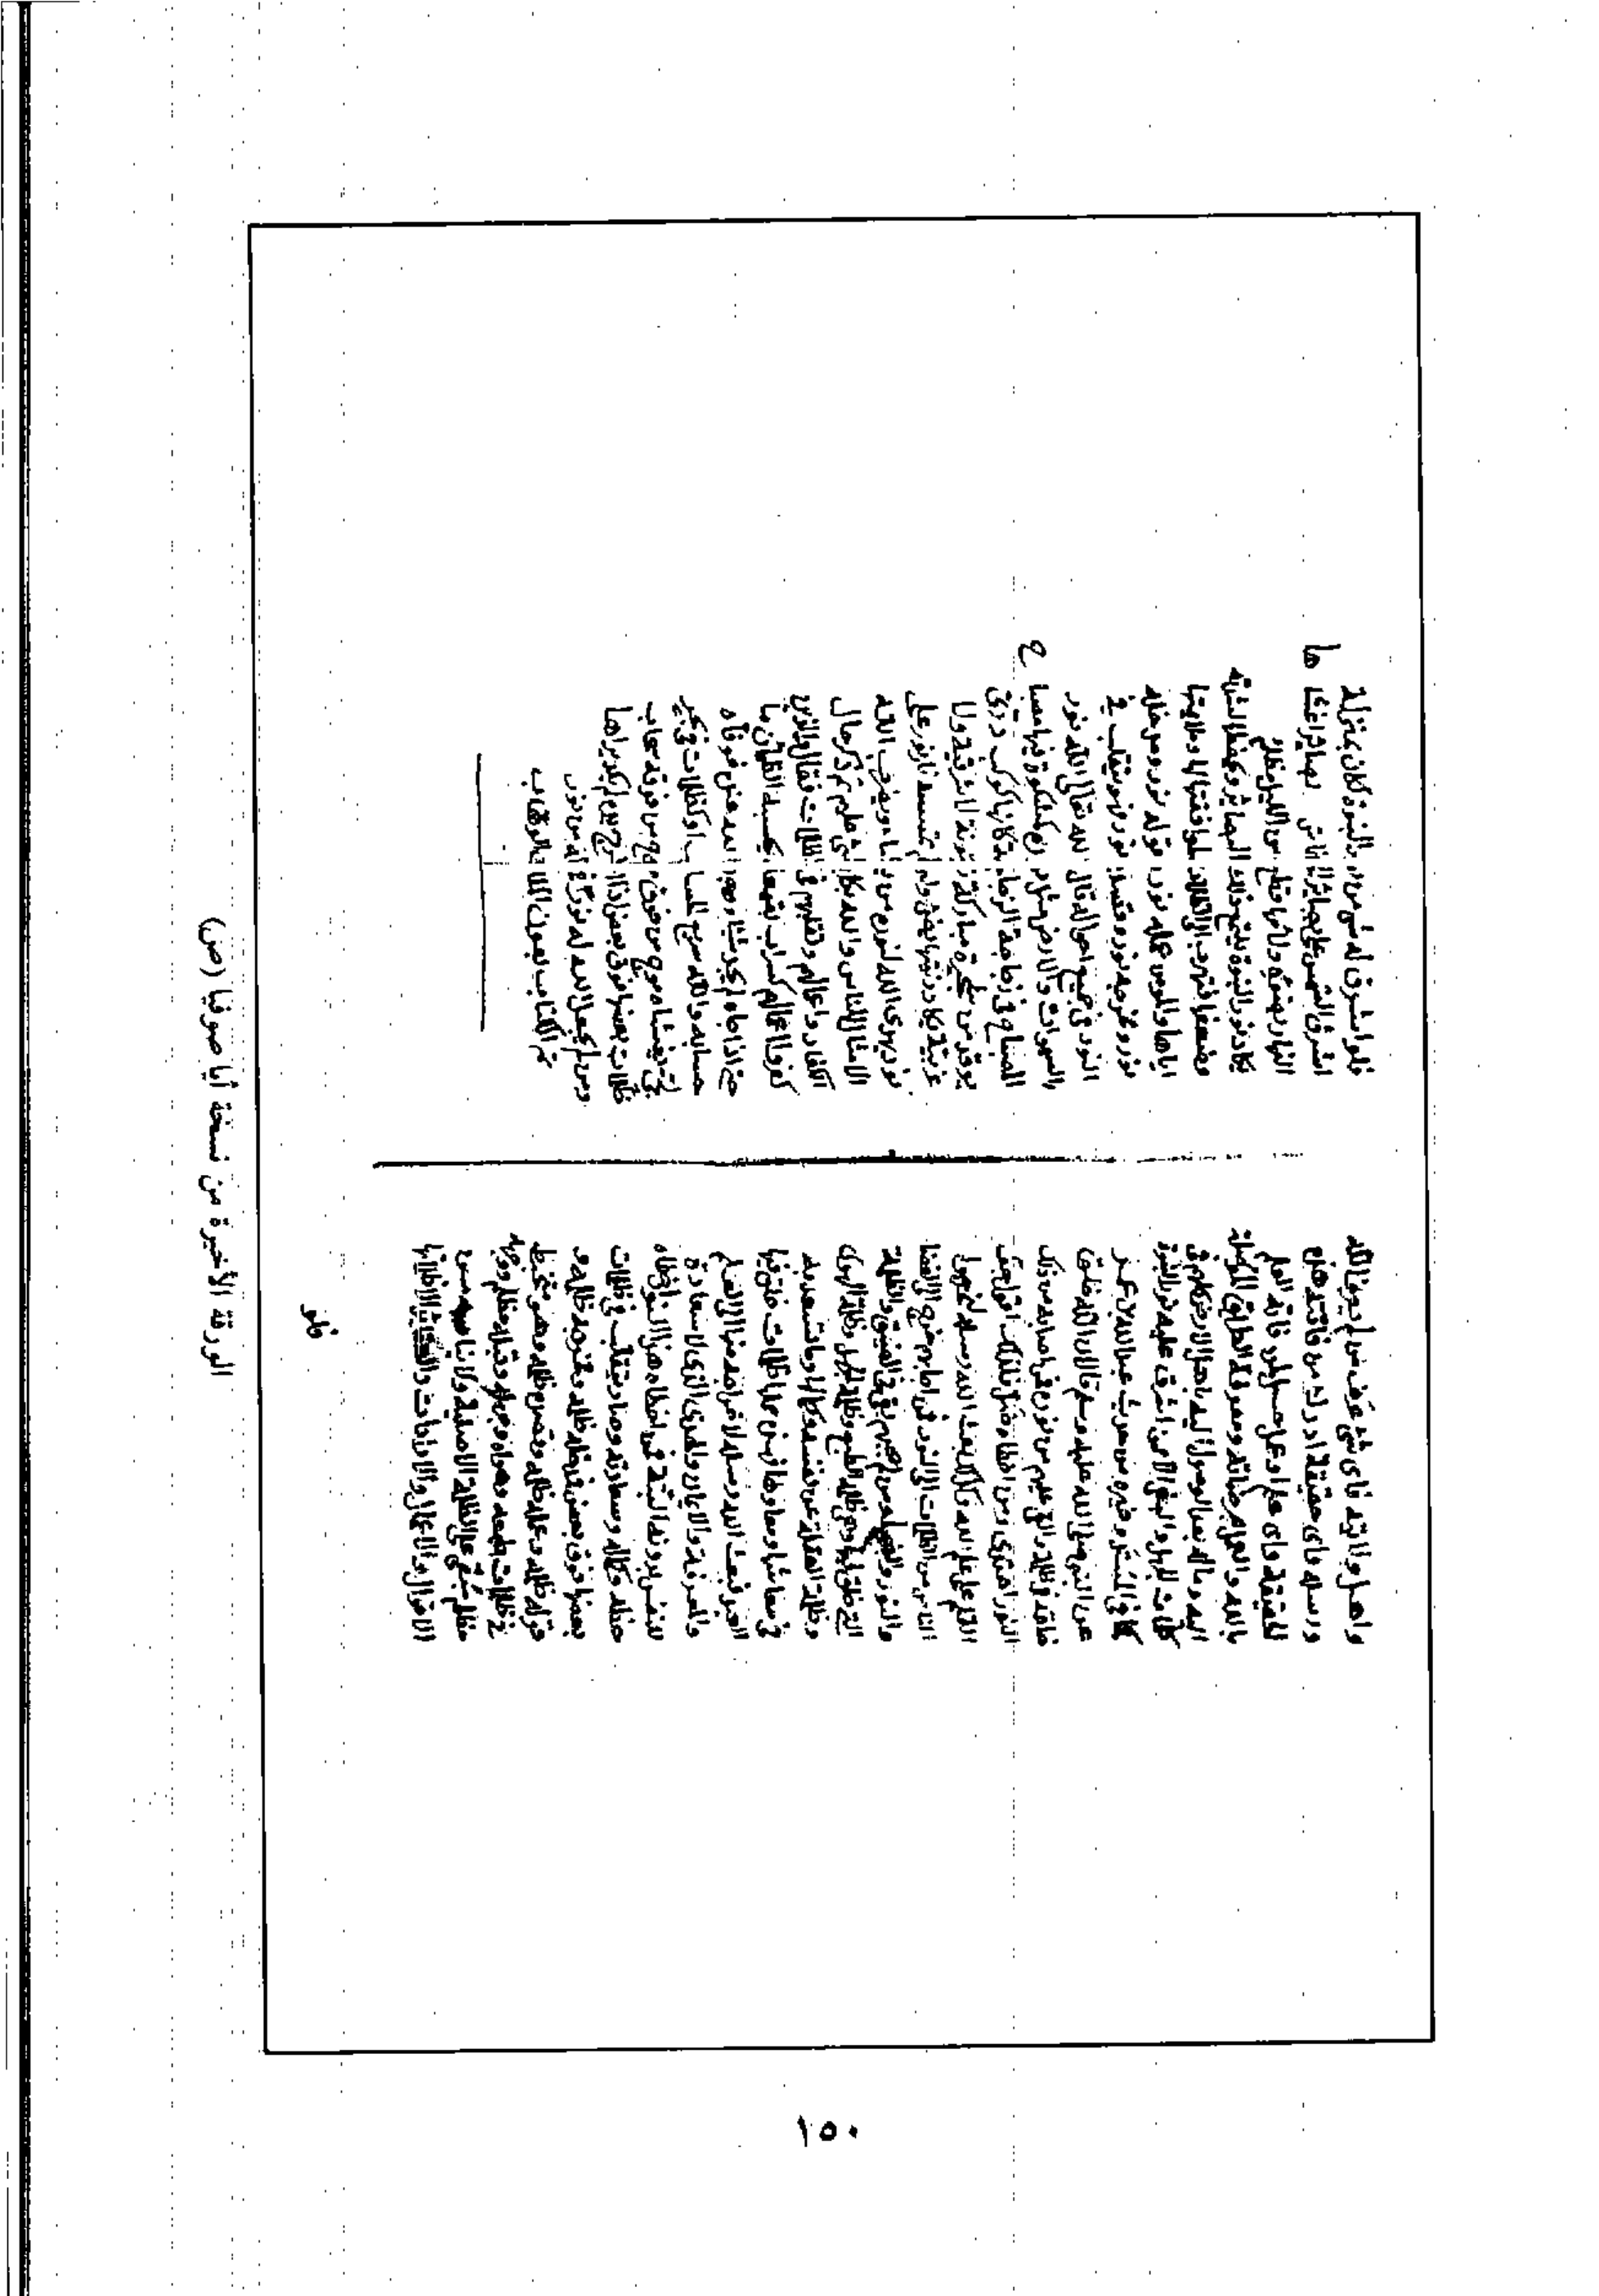 واهل ولايته فاى شئ عرف من لم يعرف الله
ورسله واى حقيقة ادرك من فاتته هذه
الحقيقة واى علم او عمل حصل لمن فاته العلم
بالله والعمل بمرضاته ومعرفة الطريق الموصلة
اليه وما له بعد الوصول اليه فاهل الارض كلهم في
ظلمات الجهل والبغي الا من اشرق عليه نور النبوة
كما في المسند وغيره من حديث عبد الله بن عمر
عن النبي صلى الله عليه وسلم قال ان الله خلق
خلقه في ظلمة والقى عليهم من نوره فمن اصابه من ذلك
النور اهتدى ومن اخطاه ضل فلذلك اقول جف
القلم على علم الله ولذلك بعث الله رسله ليخرجوا
الناس من الظلمات الى النور فمن اجابهم خرج الى الفضا
والنور والضياء ومن لم يجبهم بقي في الضيق والظلمة
التي خلق فيها وهي ظلمة الطبع وظلمة الجهل وظلمة الهوى
وظلمة الغفلة عن نفسه وكمالها وما تسعد به
في معاشها ومعادها فهذه جملة ظلمات خلق فيها
العبد فبعث الله رسله لاخراجه منها الى العلم
والمعرفة والايمان والهدى الذي لا سعادة
للنفس بدونه البتة فمن اخطاه هذا النور اخطاه
حظه وكماله وسعادته وصار يتقلب في ظلمات
بعضها فوق بعض فمدخله ظلمة ومخرجه ظلمة و
قوله ظلمة وعمله ظلمة وقصده ظلمة وهو متخبط
في ظلمات طبعه وهواه وجهله وقلبه مظلم ووجهه
مظلم مبقى على الظلمة الاصلية ولا يناسبه من
الاقوال والاعمال والارادات الا ظلماتها
فلو
فلو اشرق له شئ من نور النبوة كان بمنزلة
اشراق الشمس على بصائر الخفاش
بصائر اغشاها
النهار بضوئه ولائمها قطع من الليل مظلم
يكاد نور النبوة يعمي تلك البصائر ويخطفها لشدته
وضعفها فتهرب الى الظلمات لموافقتها لها وملايمتها
اياها والمومن عمله نور وقوله نور ومدخله
نور ومخرجه نور وقصده نور فهو يتقلب في
النور في جميع احواله قال الله تعالى الله نور
السموات والارض مثل نوره كمشكوة فيها مصباح
المصباح في زجاجة الزجاجة كانها كوكب دري
يوقد من شجرة مباركة زيتونة لا شرقية ولا
غربية يكاد زيتها يضئ ولو لم تمسسه نار نور على
نور يهدى الله لنوره من يشاء ويضرب الله
الامثال للناس والله بكل شئ عليم ثم ذكر حال
الكفار واعمالهم وتقلبهم في الظلمات فقال والذين
كفروا اعمالهم كسراب بقيعة يحسبه الظمآن ما
حتى اذا جاءه لم يجده شيئا ووجد الله عنده فوفاه
حسابه والله سريع الحساب او كظلمات في بحر
لجي يغشاه موج من فوقه موج من فوقه سحاب
ظلمات بعضها فوق بعض اذا اخرج يده لم يكد يراها
ومن لم يجعل الله له نورا فما له من نور
تم الكتاب بعون الملك الوهاب
الورقة الأخيرة من نسخة أيا صوفيا (ص)
١٥٠